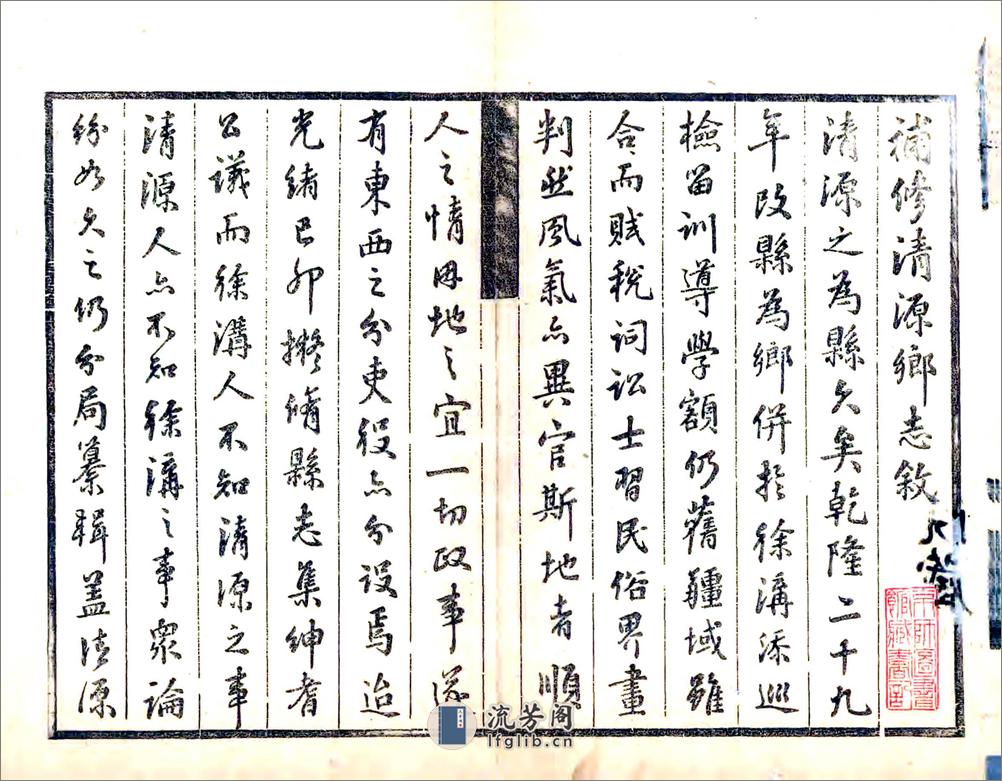 補修清源鄉志敘
清源之為縣久矣乾隆二十九
年改縣為鄉併於徐溝添巡
檢留訓導學額仍舊疆域雖
合而賦稅詞訟士習民俗界畫
判然風氣亦異官斯地者順
人之情因地之宜一切政事遂
有東西之分吏役亦分設焉迨
光緒己卯擬脩縣志集紳耆
公議而徐溝人不知清源之事
清源人亦不知徐溝之事眾論
紛如久之仍分局纂輯蓋清源
流芳阁
lfglib.cn